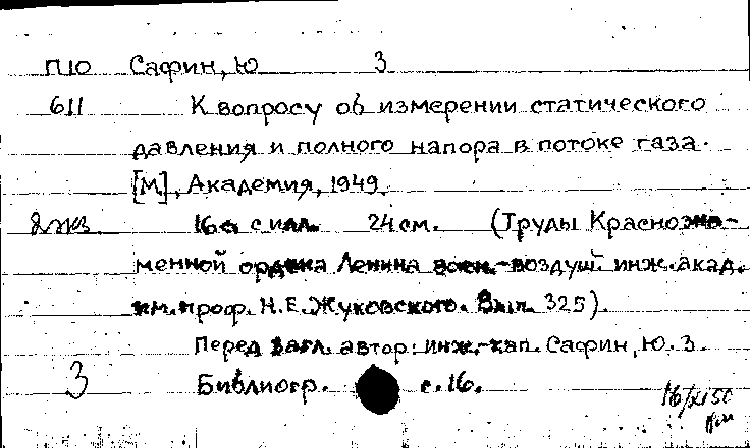 П10 Сафин, Ю 3
611 К вопросу об измерении статического
давления и полного напора в потоке газа.
[М], Академия, 1949.
2 экз 16 с. с илл. 24 см. (Труды Краснозна-
менной ордена Ленина воен.-воздуш. инж. акад.
им. проф. Н.Е. Жуковского. Вып. 325).
Перед загл. автор: инж.-кап. Сафин, Ю. З.
3 Библиогр. с. 16.
16/XI 50